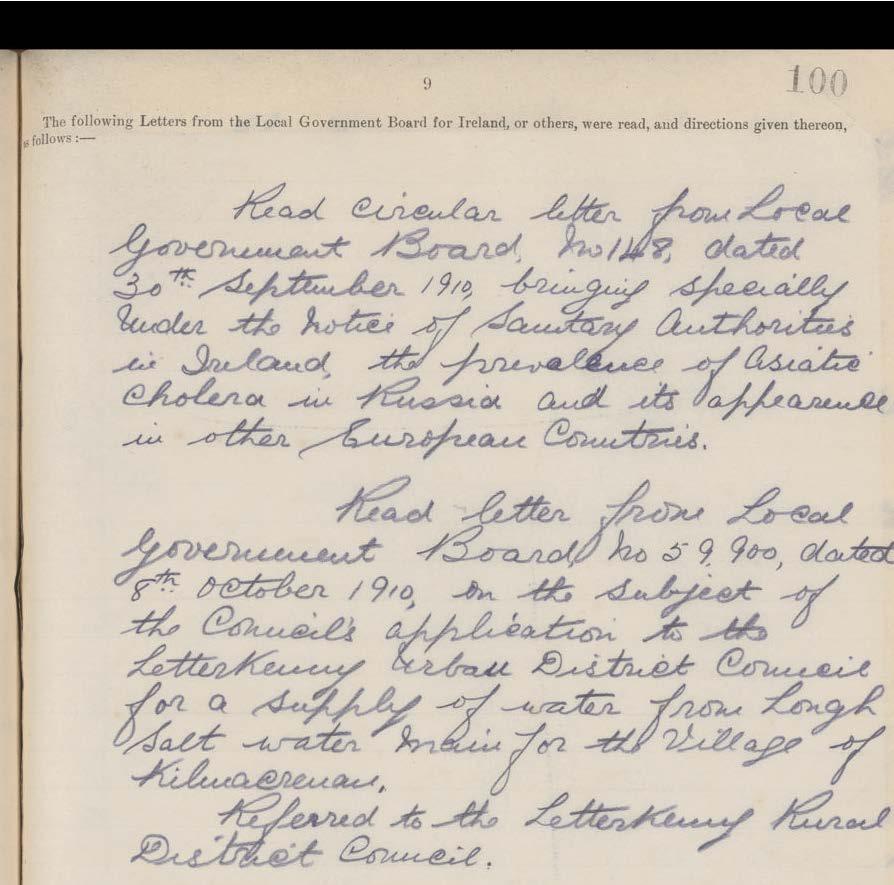 9
100
The following Letters from the Local Government Board for Ireland, or others, were read, and directions given thereon,
as follows :—
Read circular letter from Local
Government Board, No 148, dated
30th September 1910, bringing specially
under the notice of Sanitary Authorities
in Ireland, the prevalence of Asiatic
Cholera in Russia and its appearence
in other European Countries.
Read letter from Local
Government Board, No 59,900, dated
8th October 1910, on the subject of
the Council's application to the
Letterkenny Urban District Council
for a supply of water from Lough
Salt water main for the Village of
Kilmacrenan.
Referred to the Letterkenny Rural
District Council.